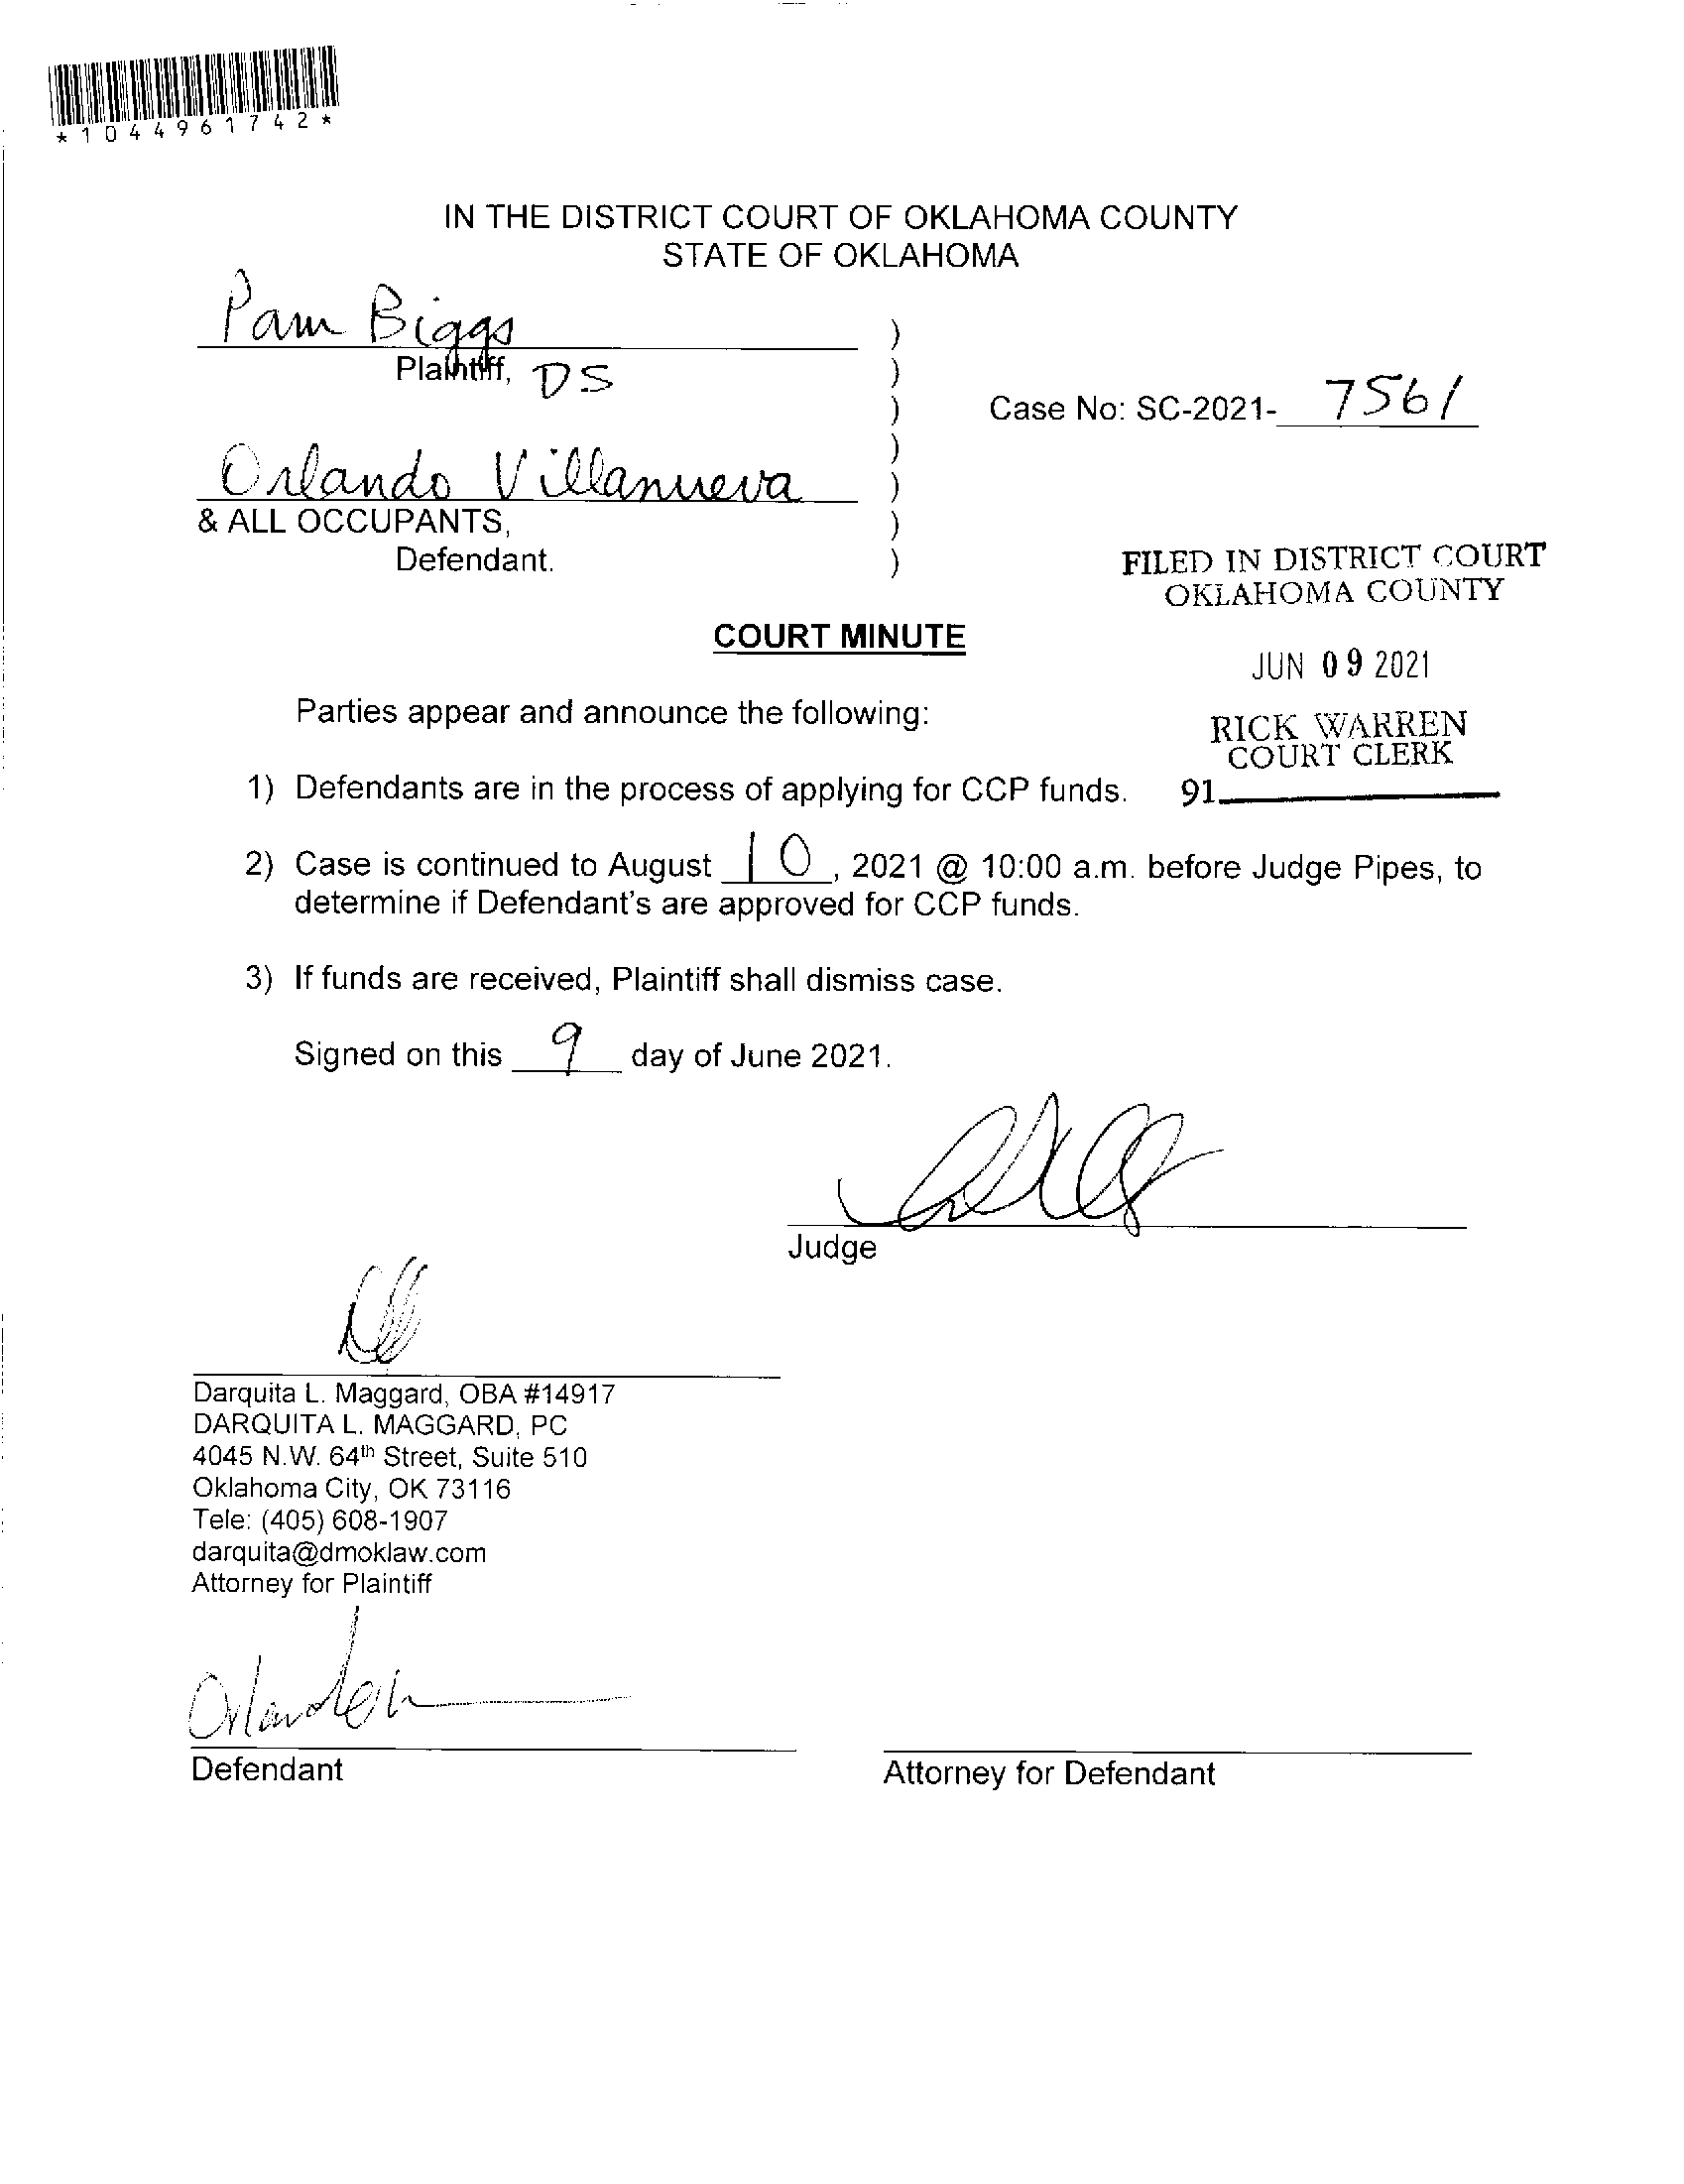 *1044961742*
IN THE DISTRICT COURT OF OKLAHOMA COUNTY
STATE OF OKLAHOMA
Pam Biggs )
Plaintiff, DS )
) Case No: SC-2021- 7561
)
Orlando Villanueva )
& ALL OCCUPANTS, )
Defendant. )
FILED IN DISTRICT COURT
OKLAHOMA COUNTY
COURT MINUTE
JUN 09 2021
Parties appear and announce the following:
RICK WARREN
COURT CLERK
1) Defendants are in the process of applying for CCP funds.
91
2) Case is continued to August 10, 2021 @ 10:00 a.m. before Judge Pipes, to
determine if Defendant's are approved for CCP funds.
3) If funds are received, Plaintiff shall dismiss case.
Signed on this 9 day of June 2021.
Judge
Darquita L. Maggard, OBA #14917
DARQUITA L. MAGGARD, PC
4045 N.W. 64th Street, Suite 510
Oklahoma City, OK 73116
Tele: (405) 608-1907
darquita@dmoklaw.com
Attorney for Plaintiff
Defendant
Attorney for Defendant